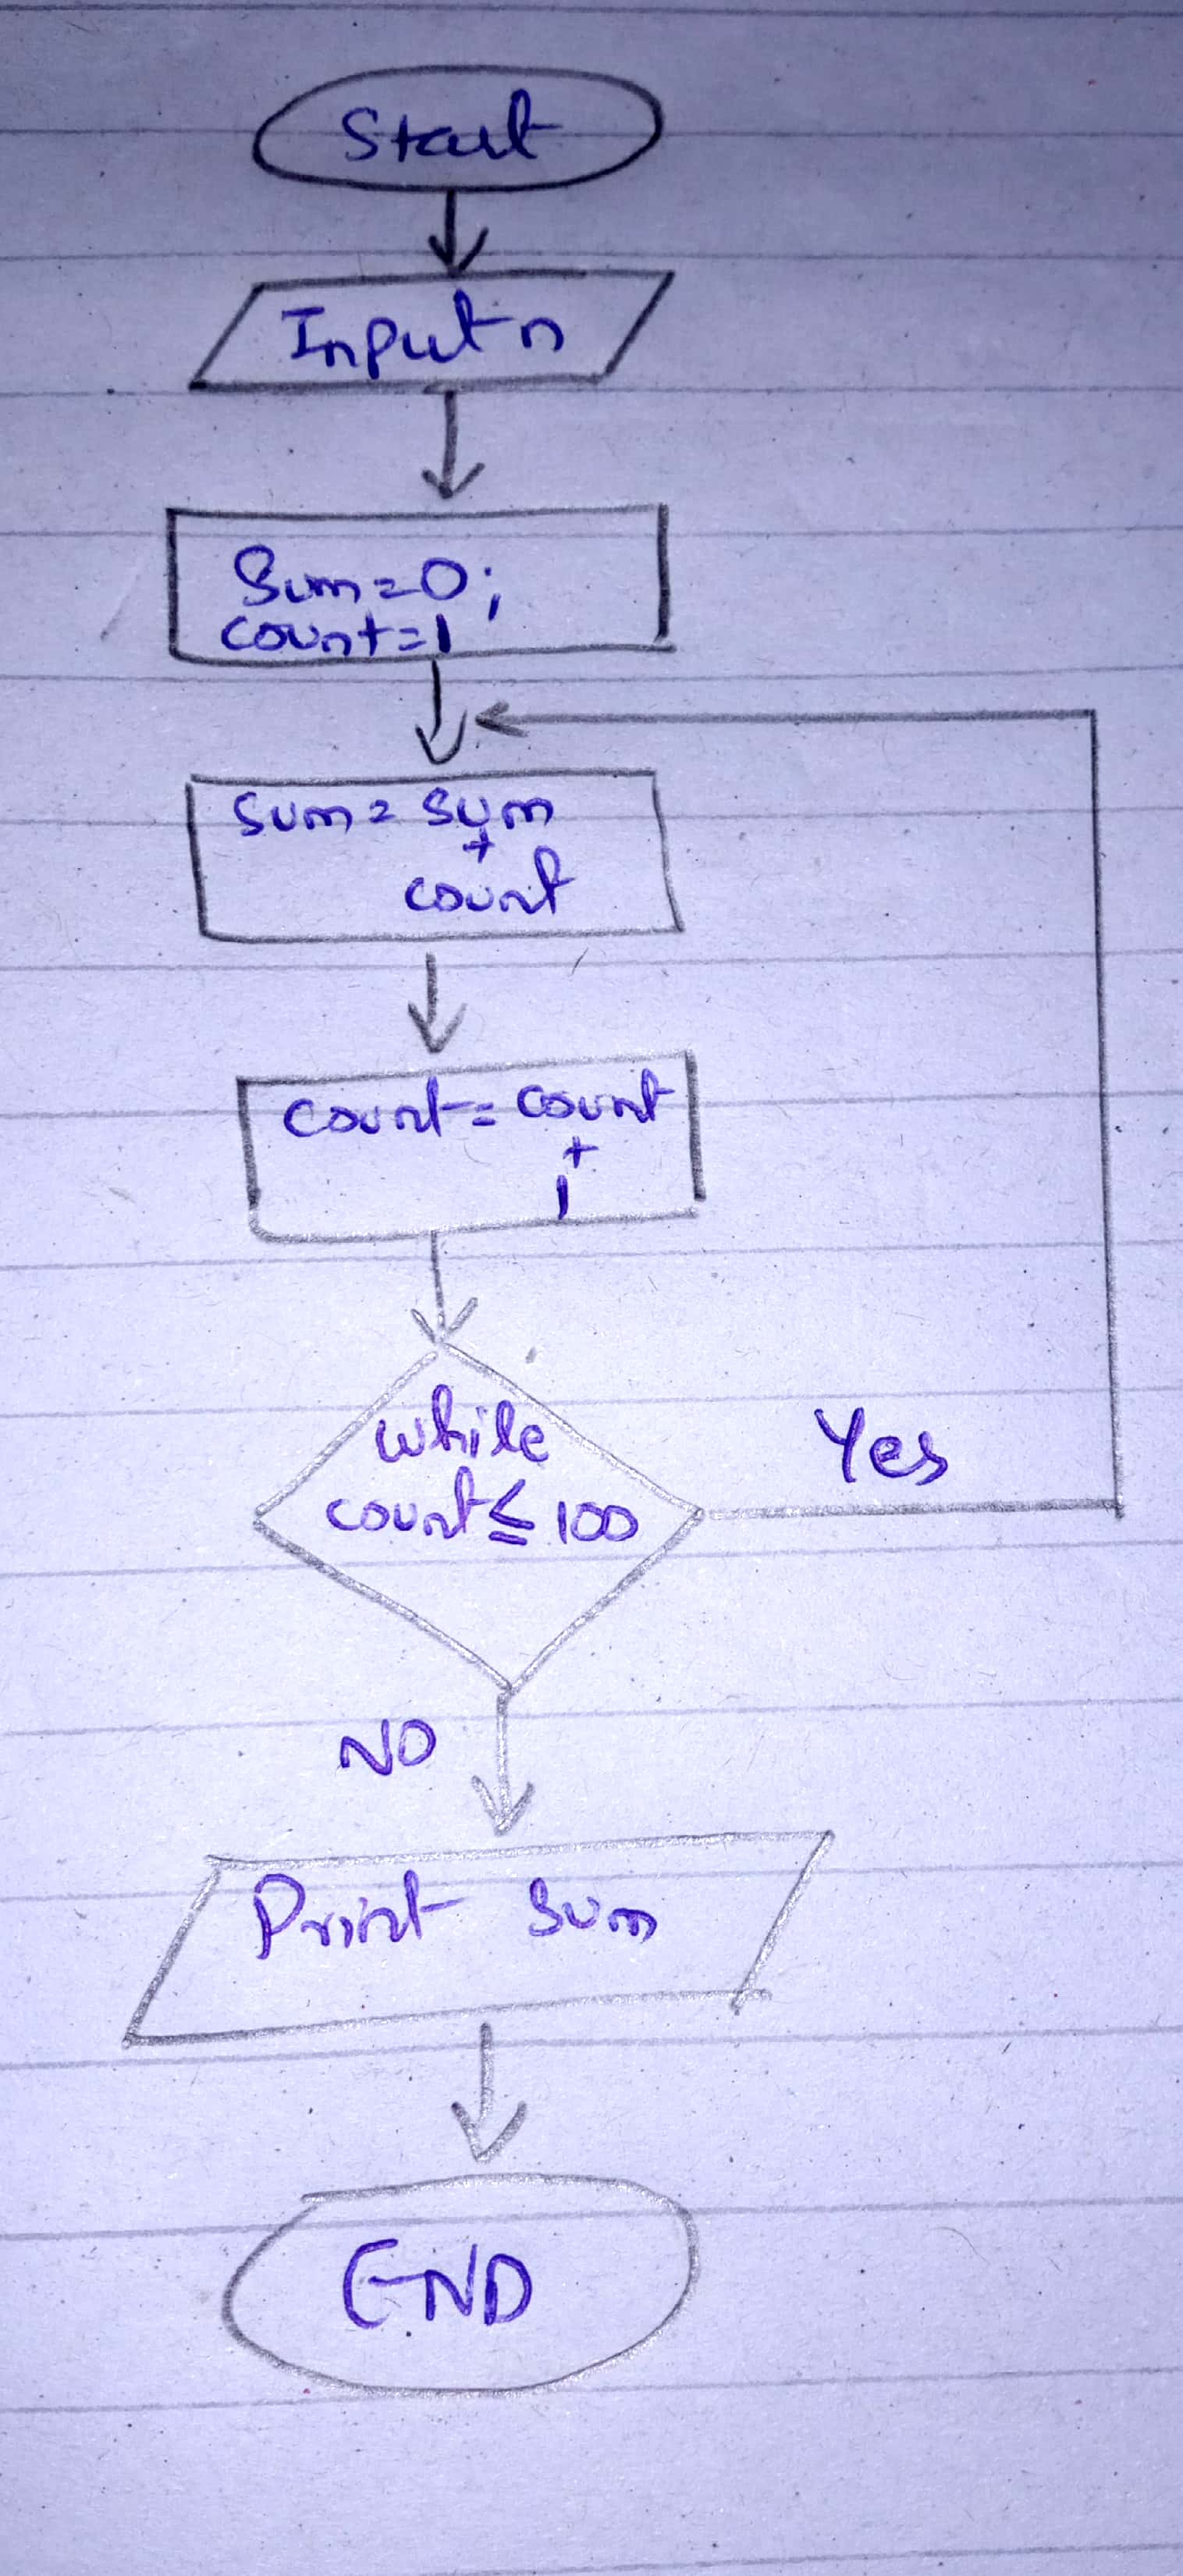 Start
Input n
Sum=0;
count=1
Sum= Sum
+
count
Count= Count
+
1
while
count≤100
Yes
NO
Print Sum
END